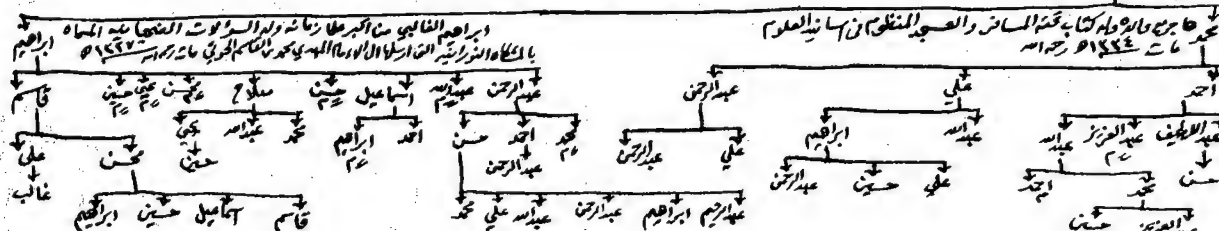 محمد
هاجر مع والده وله كتاب تحفة المسافر والعسجد المنظوم في اسانيد العلوم
مات ١٣٣٤ﻫ رحمه الله
ابراهيم
ابراهيم الغالبي من اكبر علماء زمانه وله السؤالات
بالمشكاة النورانية التي ارسلها الى الامام المهدي محمد بن القاسم الحوثي مات رحمه الله
احمد علي عبدالرحمن
عبدالرحمن عبدالله اسماعيل حسين صلاح محسن علي حسين قاسم
عبداللطيف عبدالعزيز عبدالله
عبدالله ابراهيم
علي عبدالرحمن
محمد احمد حسن
احمد ابراهيم
محمد عبدالله يحيى
محسن علي
حسن
محمد احمد
علي حسين عبدالرحمن
عبدالرحمن
حسين
غالب
عبدالعزيز حسين
عبدالرحيم ابراهيم عبدالرحمن عبدالله علي محمد
قاسم اسماعيل حسين ابراهيم